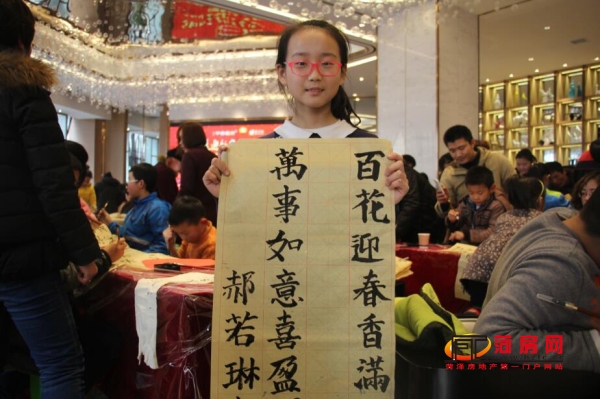 百花迎春香滿
萬事如意喜盈
郝若琳
菏房网
菏泽房地产第一门户网站